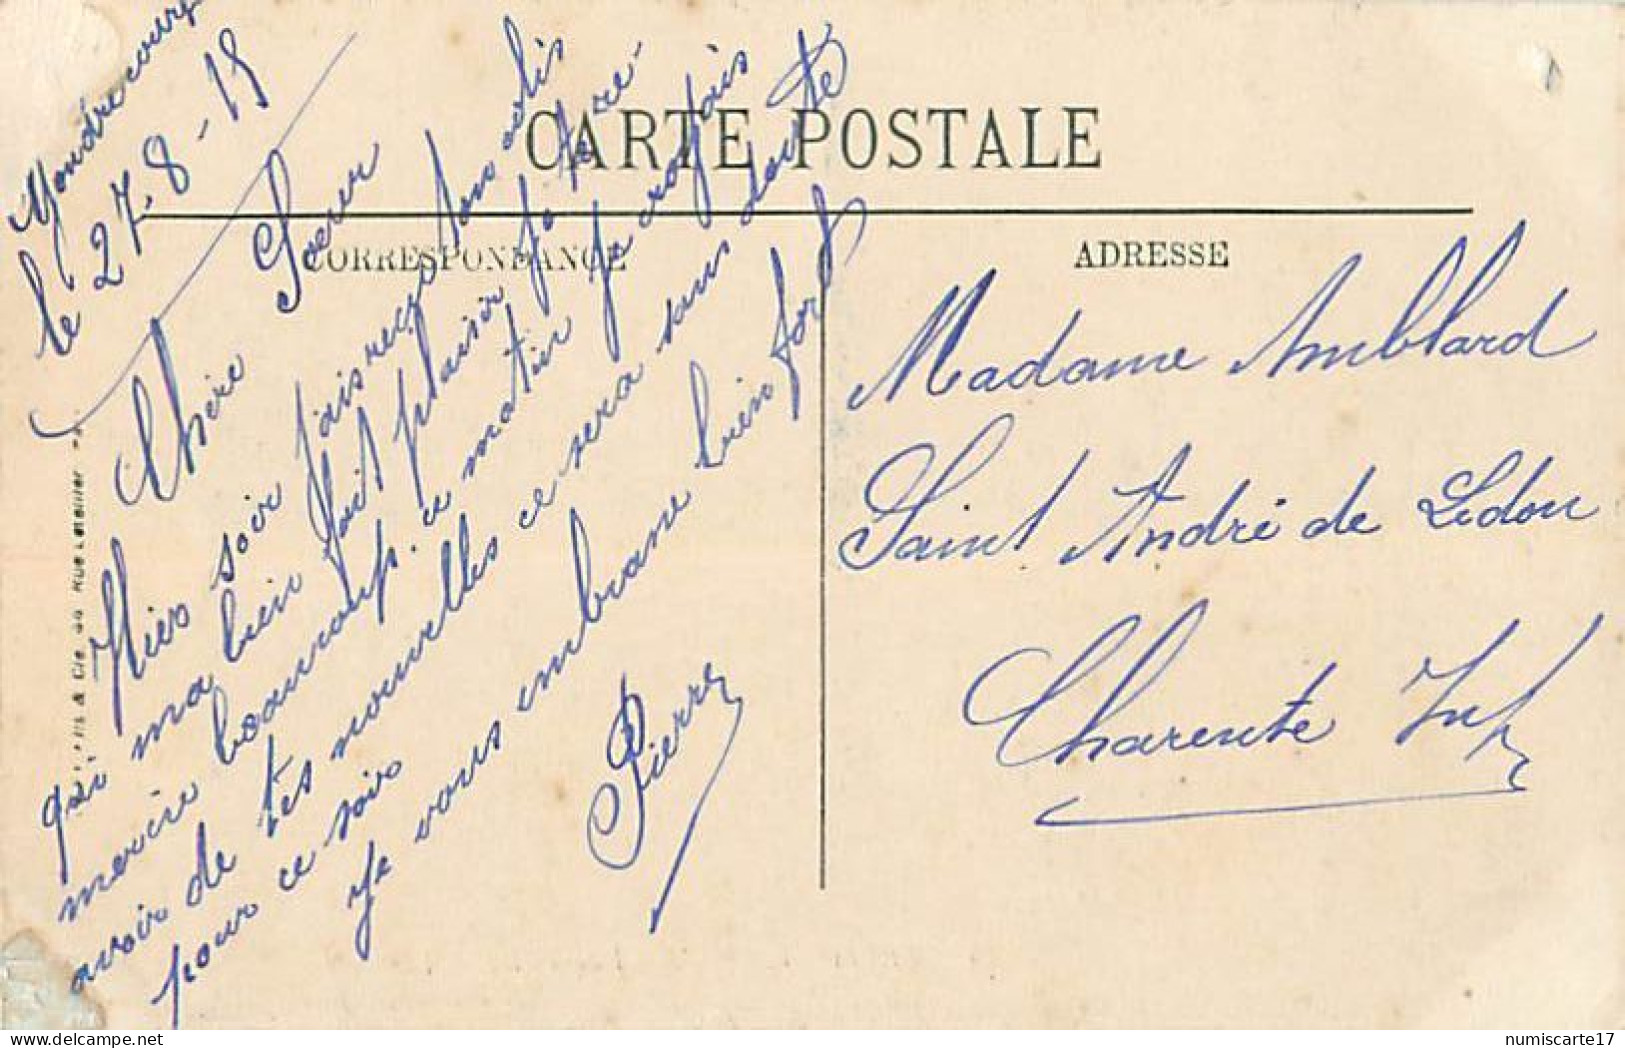 Mondrecourt
le 27-8-15
CARTE POSTALE
CORRESPONDANCE
ADRESSE
Chère Soeur
Hier soir j'ais reçu ton colis
qui m'a bien fait plaisir je te re-
mercie beaucoup. ce matin je croyais
avoir de tes nouvelles ce sera sans doute
pour ce soir
Je vous embrasse bien fort
Pierre
Madame Amblard
Saint André de Lidon
Charente Infre
& Cie Rue Letellier
numiscarte17